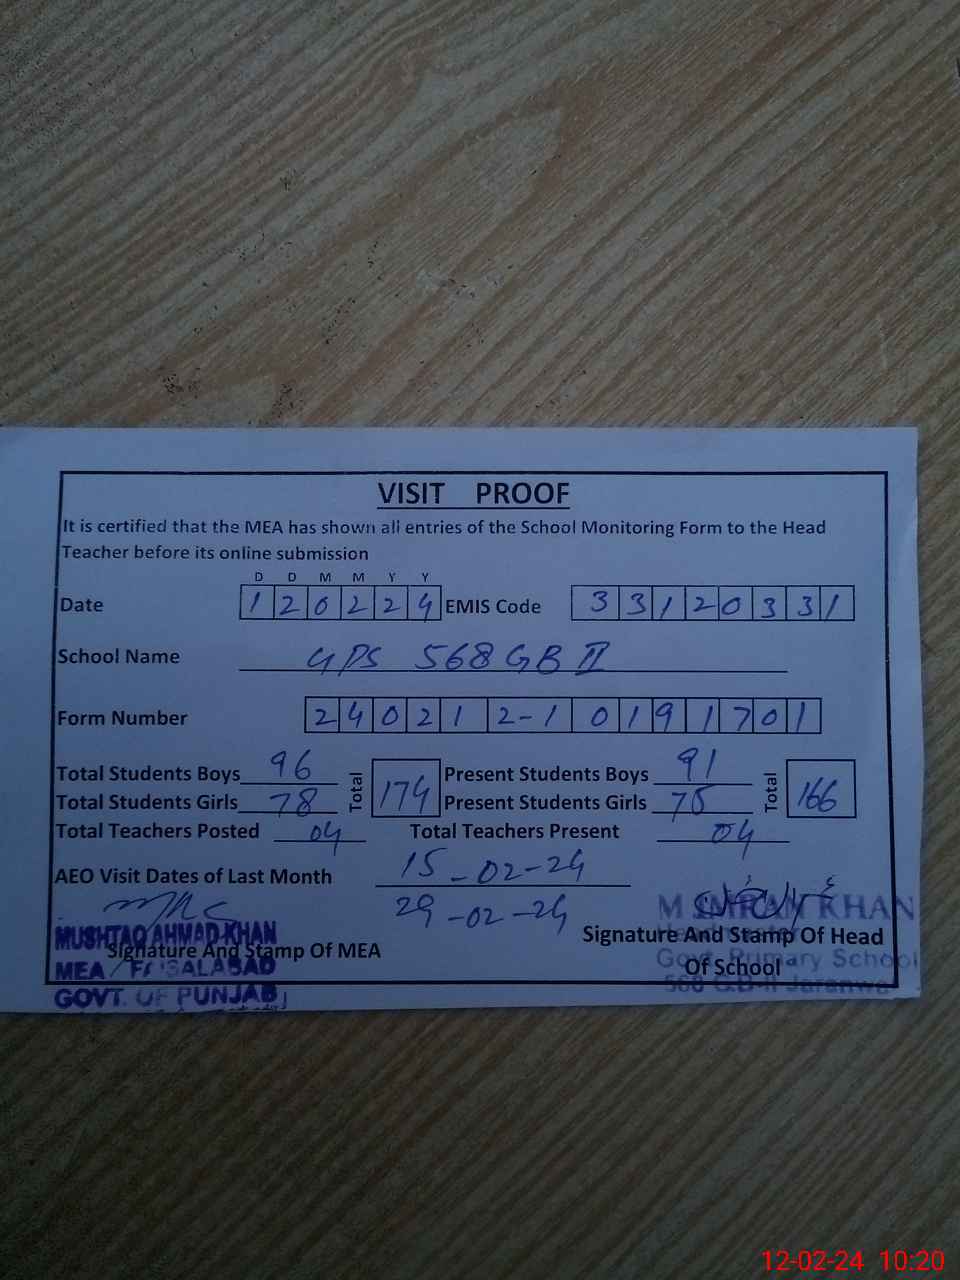 VISIT PROOF
It is certified that the MEA has shown all entries of the School Monitoring Form to the Head
Teacher before its online submission
D D M M Y Y
Date 1 2 0 2 2 4 EMIS Code 3 3 1 2 0 3 3 1
School Name GPS 568 GB II
Form Number 2 4 0 2 1 2-1 0 1 9 1 7 0 1
Total Students Boys 96 Total 174 Present Students Boys 91 Total 166
Total Students Girls 78 Present Students Girls 75
Total Teachers Posted 04 Total Teachers Present 04
AEO Visit Dates of Last Month 15-02-24
29-02-24
MUSHTAQ AHMAD KHAN
Signature And Stamp Of MEA
MEA FAISALABAD
GOVT. OF PUNJAB
M IMRAN KHAN
Headmaster
Signature And Stamp Of Head
Govt. Primary School
Of School
568 G.B-II Jaranwa
12-02-24 10:20